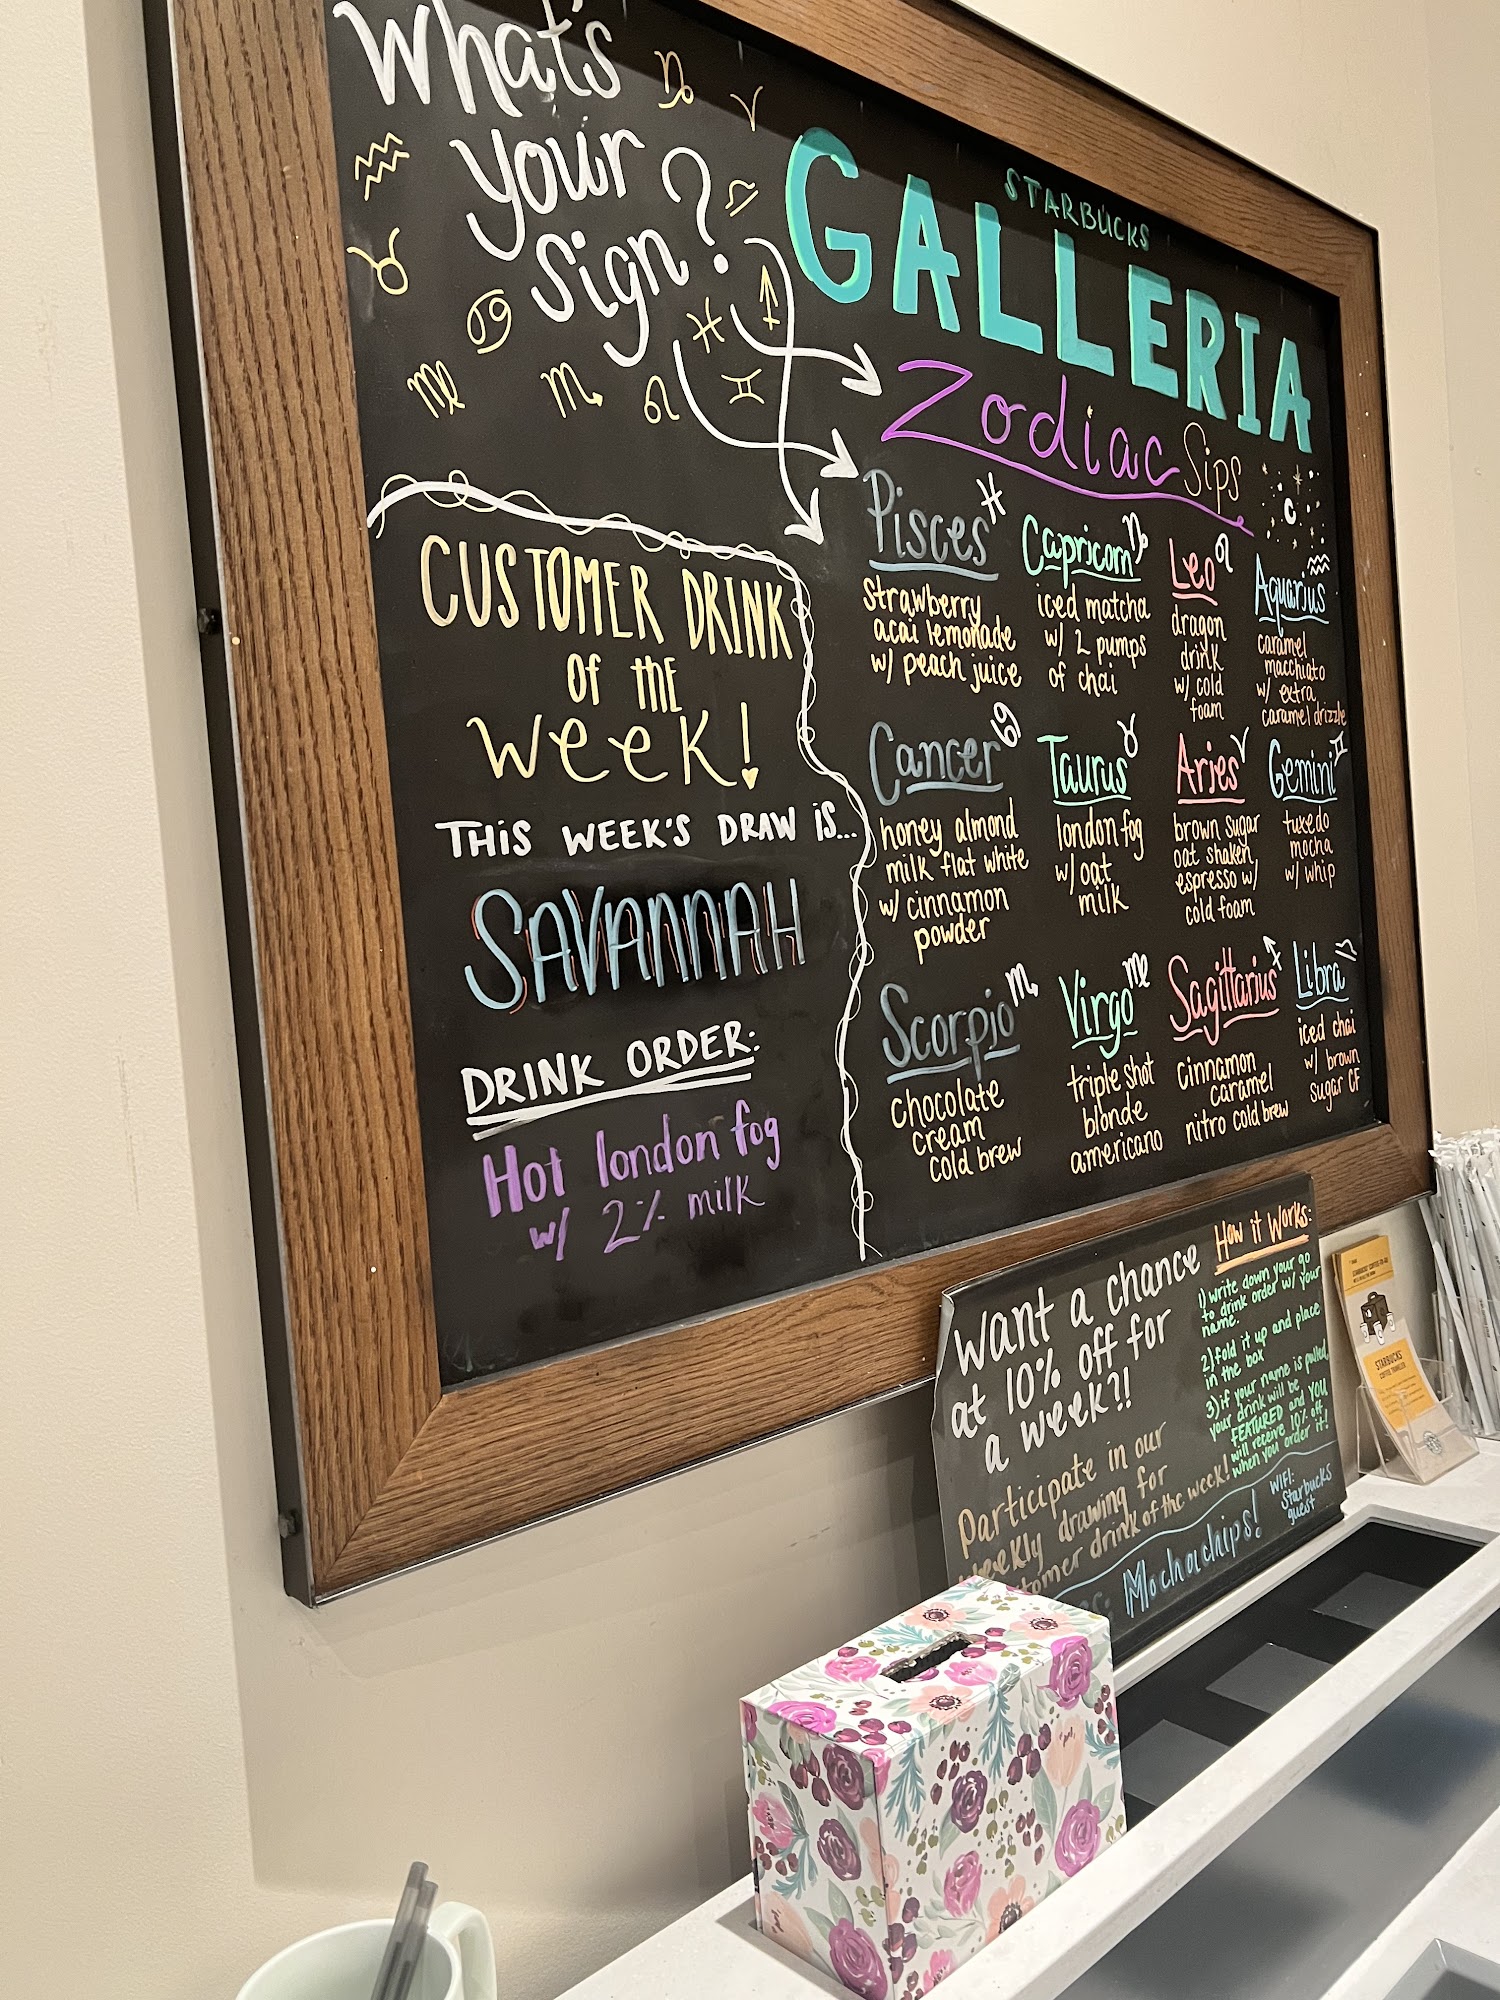 What's
your
Sign?
STARBUCKS
GALLERIA
Zodiac Sips
Pisces
strawberry
acai lemonade
w/ peach juice
Capricorn
iced matcha
w/ 2 pumps
of chai
Leo
dragon
drink
w/ cold
foam
Aquarius
caramel
macchiato
w/ extra
caramel drizzle
Cancer
honey almond
milk flat white
w/ cinnamon
powder
Taurus
london fog
w/ oat
milk
Aries
brown sugar
oat shaken
espresso w/
cold foam
Gemini
tuxedo
mocha
w/ whip
Scorpio
chocolate
cream
cold brew
Virgo
triple shot
blonde
americano
Sagittarius
cinnamon
caramel
nitro cold brew
Libra
iced chai
w/ brown
sugar CF
CUSTOMER DRINK
OF THE
Week!
THIS WEEK'S DRAW IS...
SAVANNAH
DRINK ORDER:
Hot london fog
w/ 2% milk
Want a chance
at 10% off for
a week?!
Participate in our
weekly drawing for
customer drink of the week!
Mochachips!
How it Works:
1) write down your go
to drink order w/ your
name.
2) fold it up and place
in the box
3) if your name is pulled,
your drink will be
FEATURED and YOU
will receive 10% off
when you order it!
WIFI:
Starbucks
guest
STARBUCKS
COFFEE TRAVELER